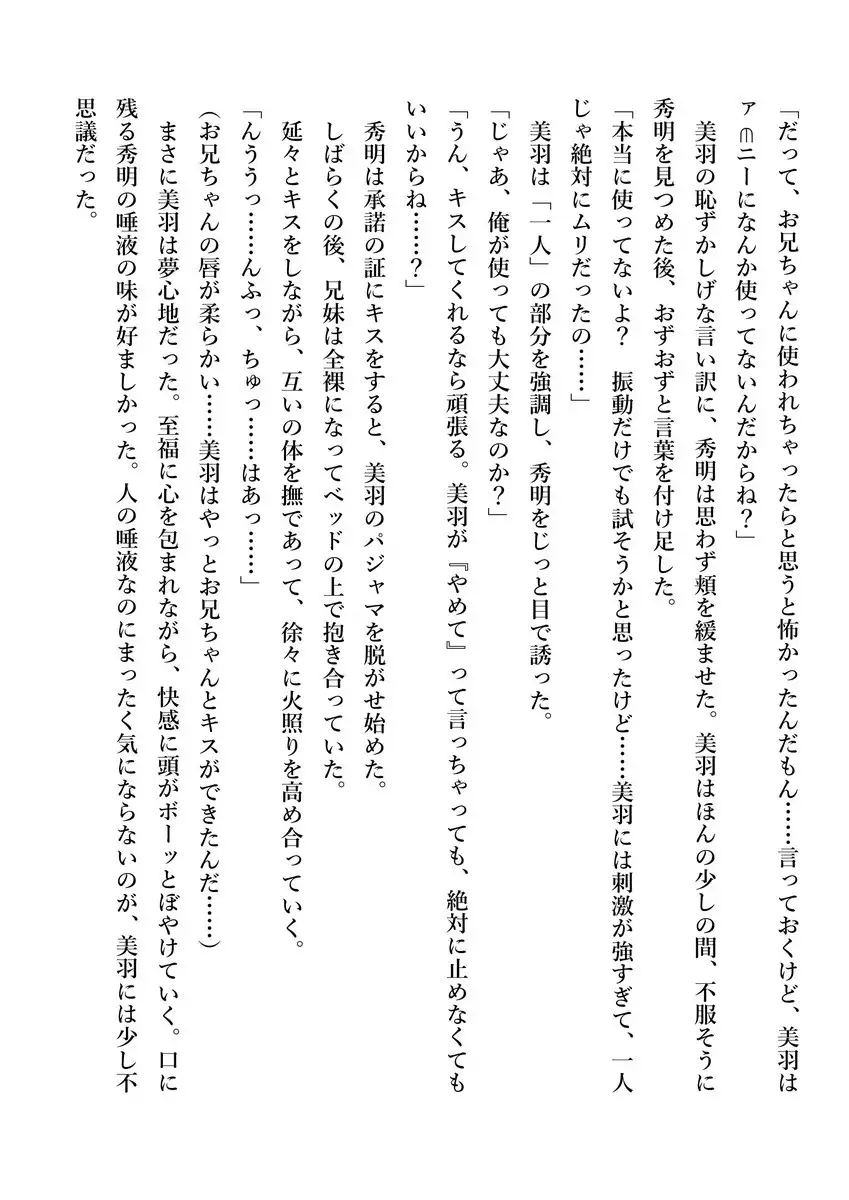 「だって、お兄ちゃんに使われちゃったらと思うと怖かったんだもん……言っておくけど、美羽は
ァ∩ニーになんか使ってないんだからね?」
美羽の恥ずかしげな言い訳に、秀明は思わず頬を緩ませた。美羽はほんの少しの間、不服そうに
秀明を見つめた後、おずおずと言葉を付け足した。
「本当に使ってないよ? 振動だけでも試そうかと思ったけど……美羽には刺激が強すぎて、一人
じゃ絶対にムリだったの……」
美羽は「一人」の部分を強調し、秀明をじっと目で誘った。
「じゃあ、俺が使っても大丈夫なのか?」
「うん、キスしてくれるなら頑張る。美羽が『やめて』って言っちゃっても、絶対に止めなくても
いいからね……?」
秀明は承諾の証にキスをすると、美羽のパジャマを脱がせ始めた。
しばらくの後、兄妹は全裸になってベッドの上で抱き合っていた。
延々とキスをしながら、互いの体を撫であって、徐々に火照りを高め合っていく。
「んううっ……んふっ、ちゅっ……はあっ……」
(お兄ちゃんの唇が柔らかい……美羽はやっとお兄ちゃんとキスができたんだ……)
まさに美羽は夢心地だった。至福に心を包まれながら、快感に頭がボーッとぼやけていく。口に
残る秀明の唾液の味が好ましかった。人の唾液なのにまったく気にならないのが、美羽には少し不
思議だった。